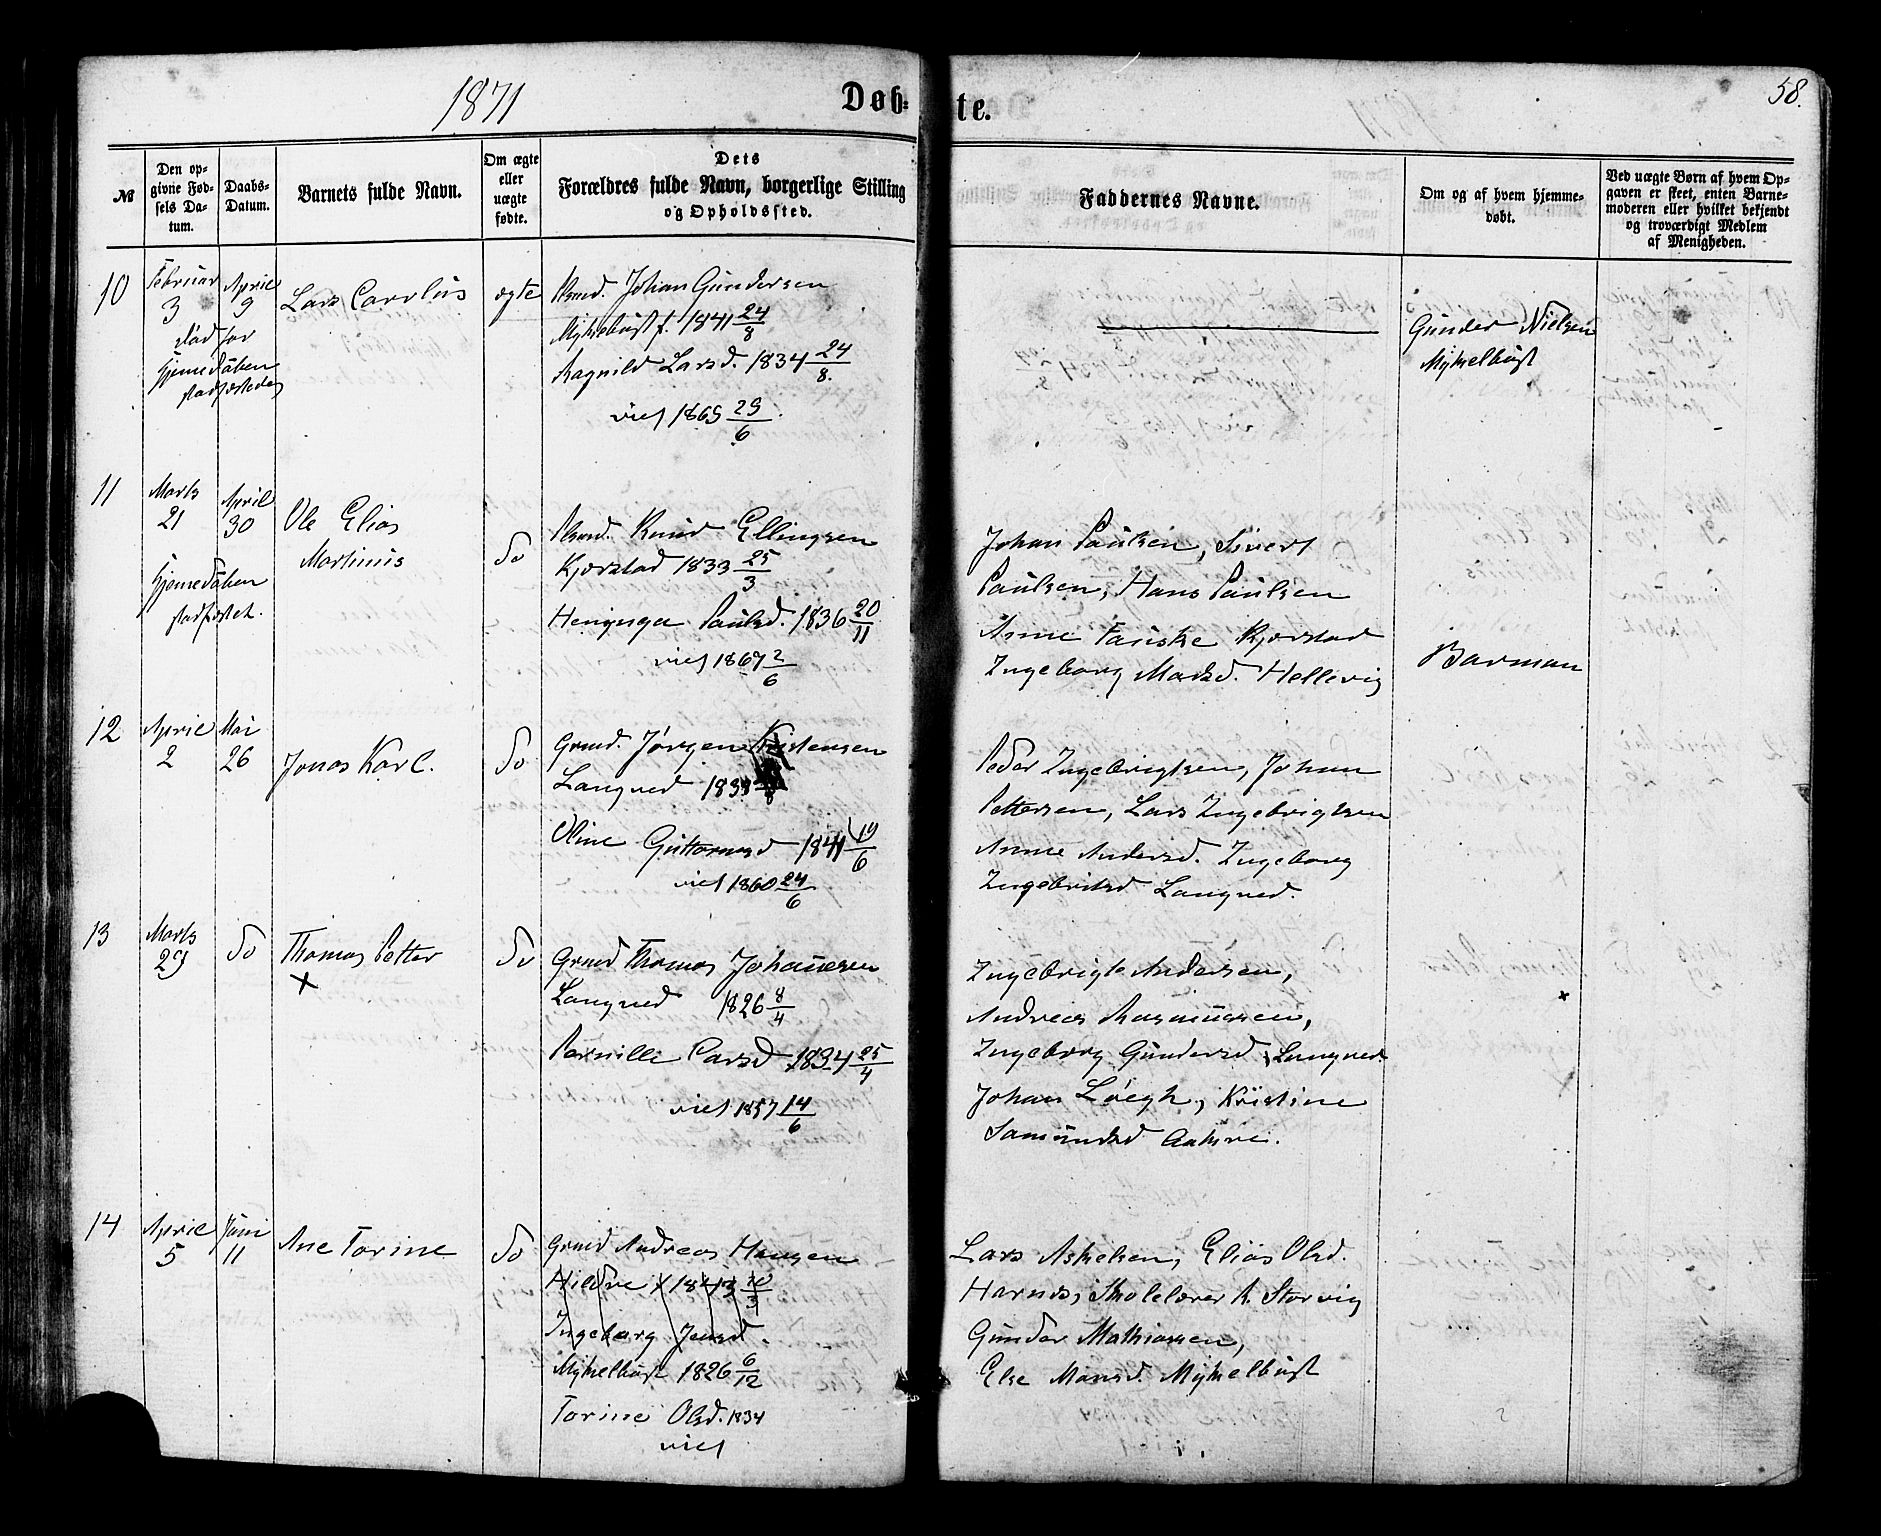 1871
Døb-
te.
58.
№
Den op-
givne Fød-
sels Da-
tum.
Daabs-
Datum.
Barnets fulde Navn.
Om ægte
eller
uægte
fødte.
Dets
Forældres fulde Navn, borgerlige Stilling
og Opholdssted.
Faddernes Navne.
Om og af hvem hjemme-
døbt.
Ved uægte Børn af hvem Op-
gaven er skeet, enten Barne-
moderen eller hvilket bekjendt
og troværdigt Medlem
af Menigheden.
10
Februar
3
April
9
død før
hjemedåben
stadfæstedes
Lars Carolus
ægte
Johan Gundersen
Myklebust f. 1841 24/8
Ragnild Larsd. 1834 24/8.
viet 1865 25/6.
Gunder Nielsen
Myklebust
11
Marts
21
April
30
hjemedåben
stadfæstet.
Ole Elias
Martinus
do
Knud Ellingsen
Kjørstad 1833 25/3
Paulsd. 1836 20/11
viet 1867 2/6
Johan Paulsen, Sivert
Paulsen, Hans Paulsen
Anne Kjørstad
Ingeborg Madsd. Hellevig
Barman
12
April
2
Mai
26
Jonas Karl.
do
Grmd. Jørgen Kristensen
Langved
Oline Guttormsd 1841 19/6
viet 1860 24/6
Peder Ingebrigtsen, Johan
Pettersen, Lars Ingebrigtsen
Anne Andersd. Ingeborg
Ingebritsd Langved.
13
Marts
29
do
Thomas Petter
×
do
Grmd Thomas Johannesen
Langved 1826 8/4
Pernille Larsd 1834 25/4
viet 1857 14/6
Ingebrigt Andersen,
Andreas Rasmussen,
Ingeborg Gundersd Langved
Johan Løegh, Kristine
Samundsd Aakre.
×
14
April
5
Juni
11
Ane Torine
do
Grmd Andreas Hansen
Hildre 1843 20/3
Ingeborg Jensd.
Myklebust 1826 6/12
Torine Olsd. 1834
viet
Lars Askelsen, Elias Olsd.
Harnes, Skolelærer K. Storvig
Gunder Mathiassen,
Else Monsd. Myklebust